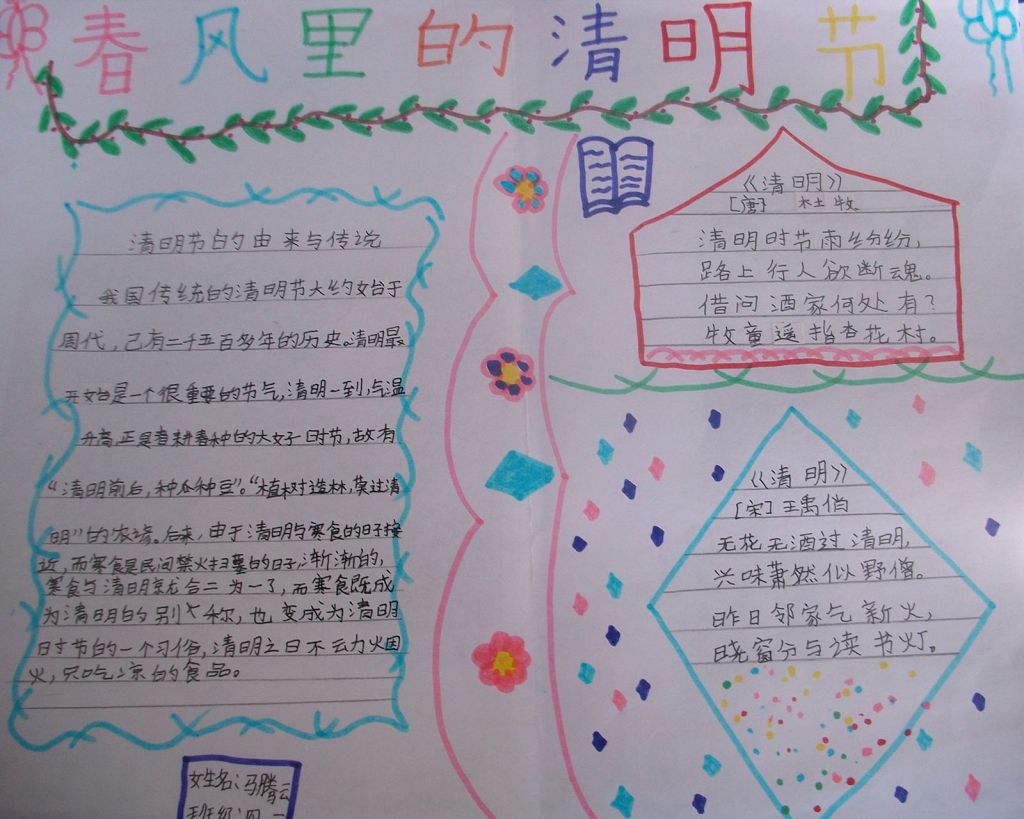 春风里的清明节
清明节的由来与传说
我国传统的清明节大约始于
周代，已有二千五百多年的历史。清明最
开始是一个很重要的节气，清明一到，气温
升高，正是春耕春种的大好时节，故有
“清明前后，种瓜种豆”。“植树造林，莫过清
明”的农谚。后来，由于清明与寒食的日子接
近，而寒食是民间禁火扫墓的日子，渐渐的，
寒食与清明就合二为一了，而寒食既成
为清明的别称，也变成为清明
时节的一个习俗，清明之日不动火烟
火，只吃凉的食品。
姓名：马腾云
班级：四一
《清明》
[唐] 杜牧
清明时节雨纷纷，
路上行人欲断魂。
借问酒家何处有？
牧童遥指杏花村。
《清明》
[宋]王禹偁
无花无酒过清明，
兴味萧然似野僧。
昨日邻家乞新火，
晓窗分与读书灯。